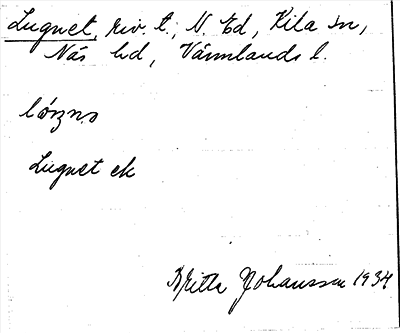 Lugnet, riv. t., N. Ed, Kila sn,
Näs hd, Värmlands l.
Lugnet ek
Britta Johansson 1934